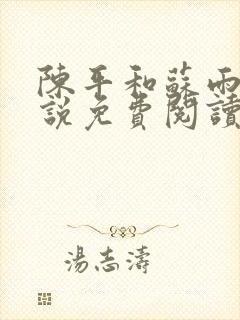 陳平和蘇雨
說免費閱讀
湯志濤